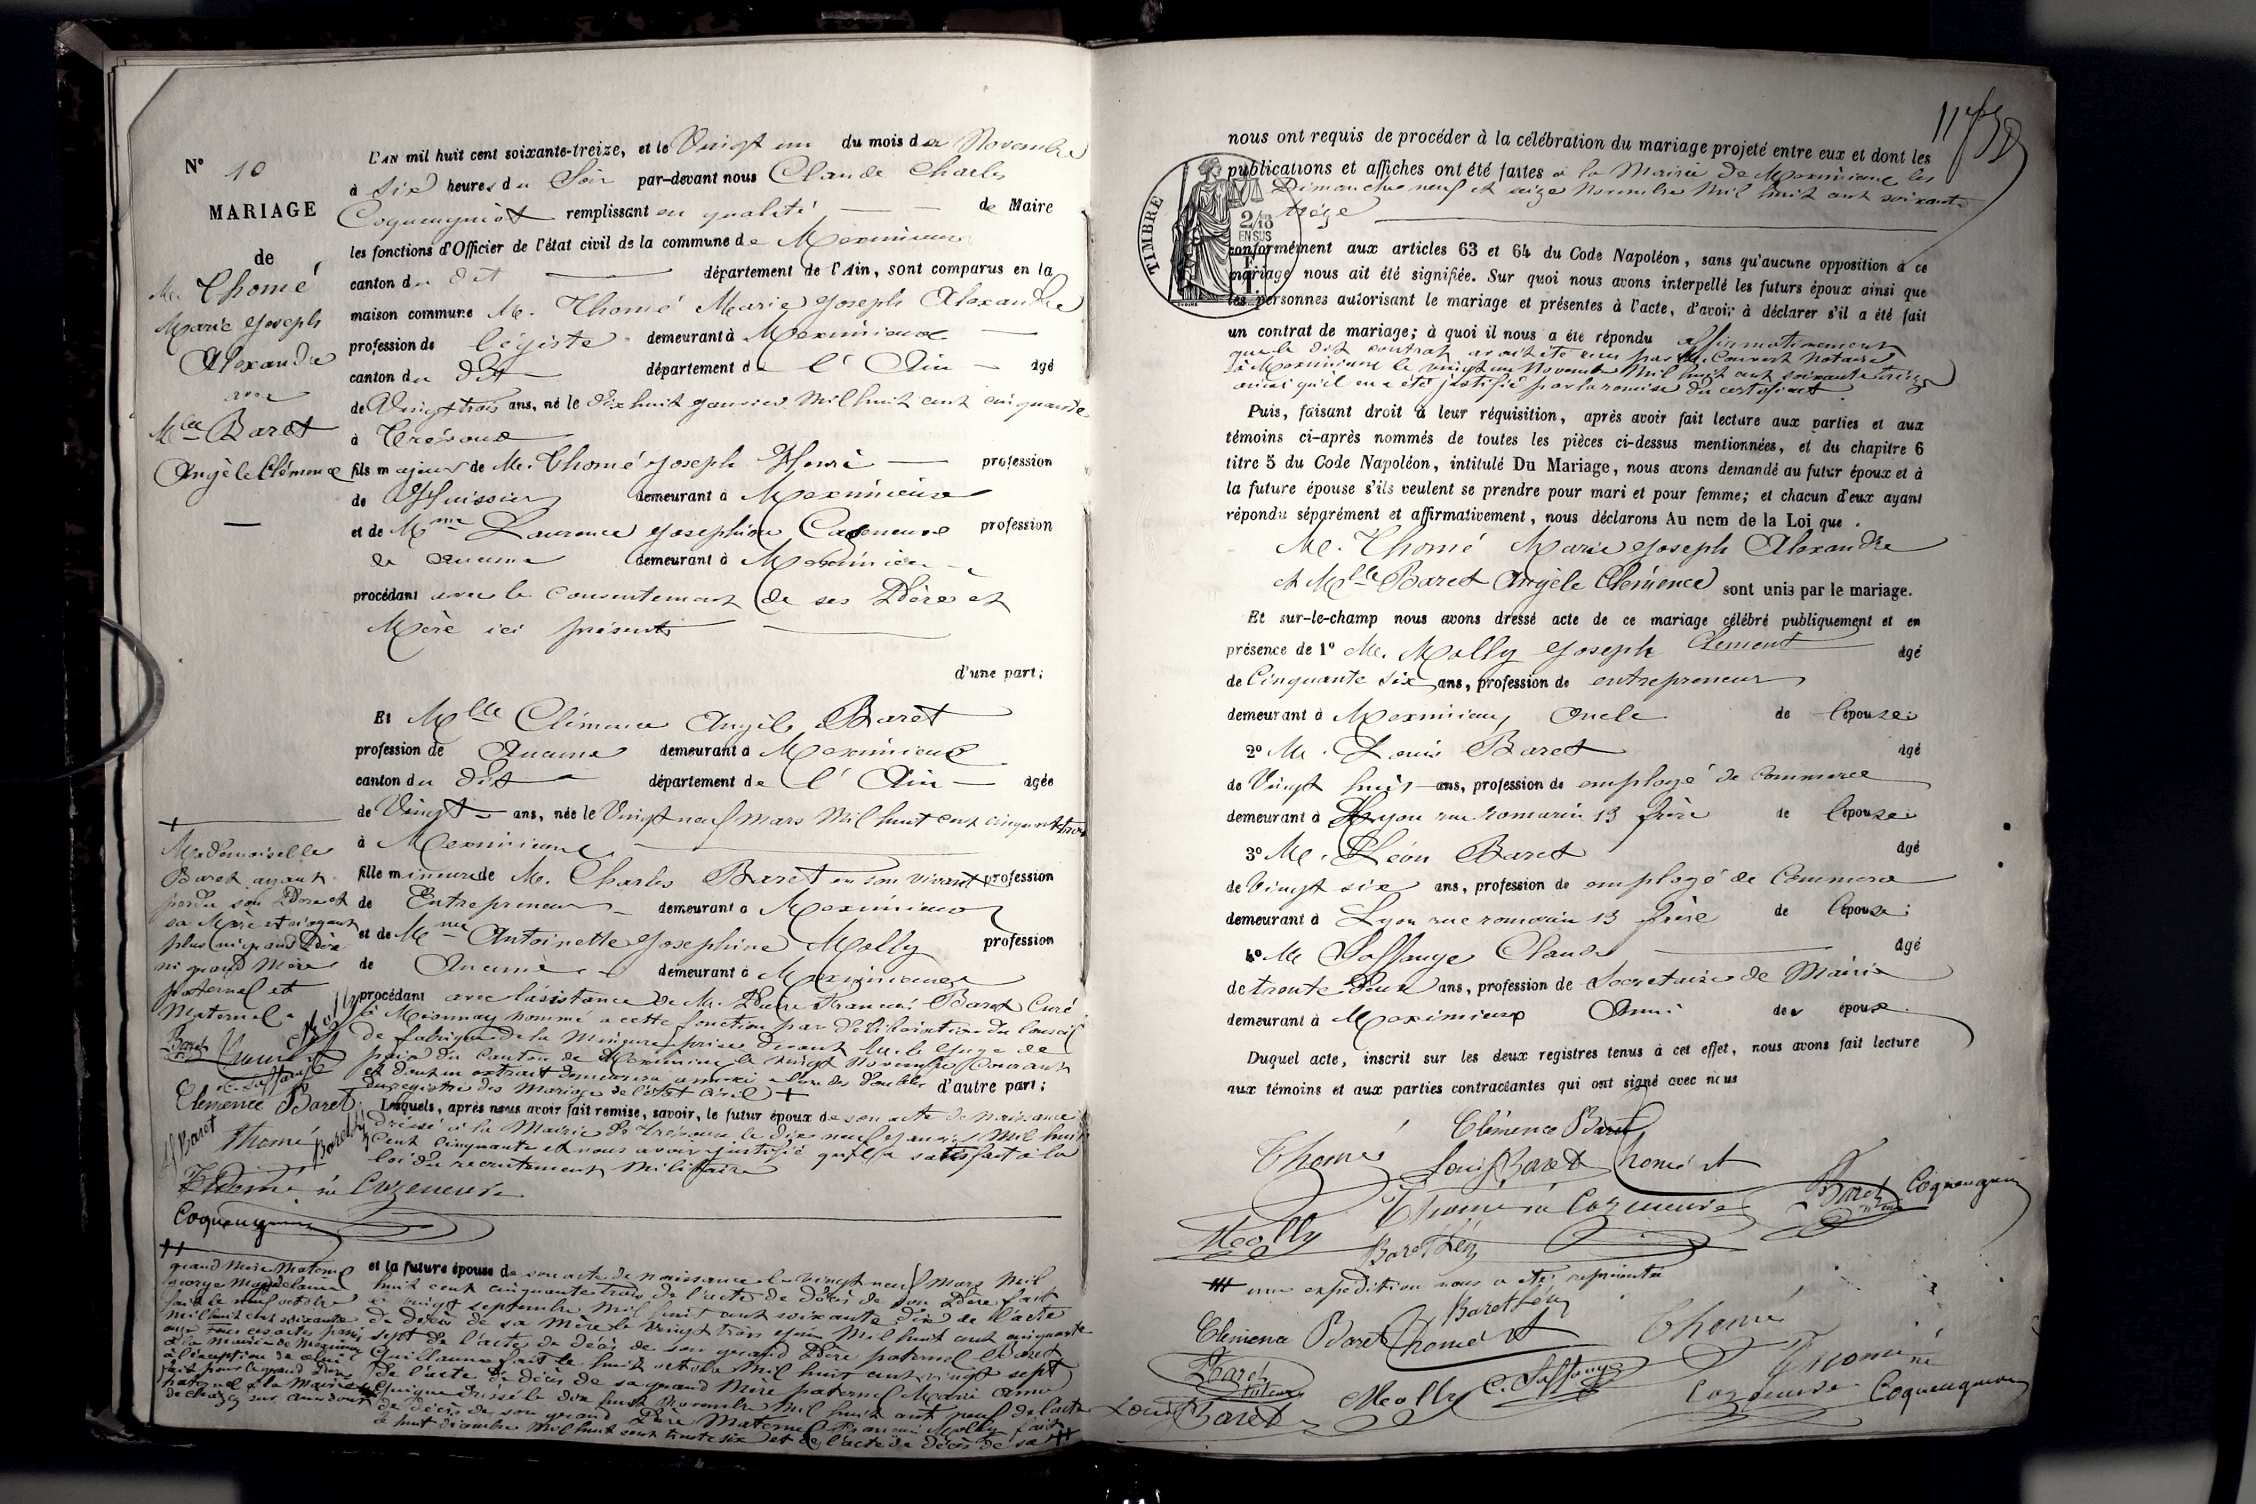 N° 10
MARIAGE
de
Mr. Thomé
Marie Joseph
Alexandre
avec
Mlle Baret
Angèle Clémence
L'AN mil huit cent soixante-treize, et le Vingt un du mois de Novembre
à Six heures du Soir par-devant nous Claude Charles
Coqueugniot remplissant en qualité de Maire
les fonctions d'Officier de l'état civil de la commune de Meximieux
canton du dit département de l'Ain, sont comparus en la
maison commune Mr. Thomé Marie Joseph Alexandre
profession de légiste demeurant à Meximieux
canton du dit département de l'Ain âgé
de Vingt trois ans, né le dix huit Janvier mil huit cent cinquante
à Trévoux
fils majeur de Mr. Thomé Joseph Henri profession
de Huissier demeurant à Meximieux
et de Mme Laurence Josephine Cazeneuve profession
de aucune demeurant à Meximieux
procédant avec le consentement de ses Père et
Mère ici présents
d'une part;
Et Mlle Clémence Angèle Baret
profession de Aucune demeurant à Meximieux
canton du dit département de l'Ain âgée
de Vingt ans, née le Vingt neuf mars mil huit cent cinquante trois
à Meximieux
fille mineure de Mr. Charles Baret en son vivant profession
de Entrepreneur demeurant à Meximieux
et de Mme Antoinette Josephine Molly profession
de Aucune demeurant à Meximieux
procédant avec l'assistance de Mr. Pierre François Baret Curé
à Mionnay nommé à cette fonction par délibération du conseil
de famille de la Mineure prise devant Mr le Juge de
paix du Canton de Meximieux le vingt Novembre courant
et dont un extrait demeurera annexé à l'un des doubles d'autre part;
du registre des Mariages de l'état civil +
Mademoiselle
Baret ayant
perdu son Père et
sa Mère et n'ayant
plus ni grand Père
ni grand Mère
paternel et
Maternel
Baret
C. Saffange
Clémence Baret
L Baret
Thomé
Baret Léon
Thomé née Cazeneuve
Coqueugniot
Lesquels, après nous avoir fait remise, savoir, le futur époux de son acte de naissance
dressé à la Mairie de Trévoux le dix neuf Janvier mil huit
cent cinquante et nous avoir justifié qu'il a satisfait à la
loi du recrutement Militaire
et la future épouse de son acte de naissance le vingt neuf mars mil
huit cent cinquante trois de l'acte de décès de son Père fait
le vingt septembre mil huit cent soixante dix de l'acte
de décès de sa mère le vingt trois Juin mil huit cent cinquante
sept de l'acte de décès de son grand Père paternel Baret
Guillaume fait le huit octobre mil huit cent vingt sept
de l'acte de décès de sa grand Mère paternel Marie Anne
dressé le dix huit novembre mil huit cent neuf de l'acte
de décès de son grand Père Maternel François Molly fait
le huit décembre mil huit cent trente six et de l'acte de décès de sa ++
++
grand Mère Maternel
George Magdelaine
fait le neuf octobre
mil huit cent soixante
onze tous ces actes pris
à la mairie de Meximieux
à l'exception de celui
fait pour le grand Père
paternel à la Mairie
de Chazey sur Ain dont
nous ont requis de procéder à la célébration du mariage projeté entre eux et dont les
publications et affiches ont été faites à la Mairie de Meximieux les
Dimanches neuf et seize Novembre mil huit cent soixante
treize
TIMBRE
2/10
EN SUS
conformément aux articles 63 et 64 du Code Napoléon, sans qu'aucune opposition à ce
mariage nous ait été signifiée. Sur quoi nous avons interpellé les futurs époux ainsi que
les personnes autorisant le mariage et présentes à l'acte, d'avoir à déclarer s'il a été fait
un contrat de mariage; à quoi il nous a été répondu affirmativement
que le dit contrat avait été reçu par Me. Convert Notaire
à Meximieux le vingt un Novembre mil huit cent soixante treize
ainsi qu'il en a été justifié par la remise du certificat.
Puis, faisant droit à leur réquisition, après avoir fait lecture aux parties et aux
témoins ci-après nommés de toutes les pièces ci-dessus mentionnées, et du chapitre 6
titre 5 du Code Napoléon, intitulé Du Mariage, nous avons demandé au futur époux et à
la future épouse s'ils veulent se prendre pour mari et pour femme; et chacun d'eux ayant
répondu séparément et affirmativement, nous déclarons Au nom de la Loi que
Mr. Thomé Marie Joseph Alexandre
et Mlle Baret Angèle Clémence sont unis par le mariage.
Et sur-le-champ nous avons dressé acte de ce mariage célébré publiquement et en
présence de 1° Mr. Molly Joseph Clement âgé
de Cinquante six ans, profession de entrepreneur
demeurant à Meximieux Oncle de l'épouse;
2° Mr. Louis Baret âgé
de Vingt huit ans, profession de employé de Commerce
demeurant à Lyon rue romarin 13 frère de l'épouse;
3° Mr. Léon Baret âgé
de Vingt six ans, profession de employé de Commerce
demeurant à Lyon rue romarin 13 frère de l'épouse;
4° Mr Saffange Claude âgé
de trente deux ans, profession de Secrétaire de Mairie
demeurant à Meximieux Ami des époux.
Duquel acte, inscrit sur les deux registres tenus à cet effet, nous avons fait lecture
aux témoins et aux parties contractantes qui ont signé avec nous
Clémence Baret
Thomé Louis Baret Thomé
Thomé née Cazeneuve Baret Coqueugniot
Molly Baret Léon
+++ une expédition nous a été représentée
Baret Léon
Clémence Baret Thomé Thomé
Baret
tuteur
Molly C. Saffange Thomé née
Cazeneuve Coqueugniot
Louis Baret